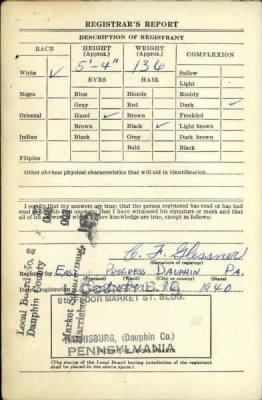 REGISTRAR'S REPORT
DESCRIPTION OF REGISTRANT
RACE HEIGHT (Approx.) WEIGHT (Approx.) COMPLEXION
5'-4" 136
White ✓ Sallow
EYES HAIR Light
Negro Blue Blonde Ruddy
Gray Red Dark ✓
Oriental Hazel ✓ Brown Freckled
Brown Black ✓ Light brown
Indian Black Gray Dark brown
Bald Black
Filipino
Other obvious physical characteristics that will aid in identification
I certify that my answers are true; that the person registered has read or has had
read to him his own answers; that I have witnessed his signature or mark and that
all of his answers of which I have knowledge are true, except as follows:
C. F. Glessner
(Signature of registrar)
Registrar for EAST PROGRESS DAUPHIN PA.
(Precinct) (Ward) (City or county) (State)
Date of registration October 16 1940
Local Board No. 2
Dauphin County
Market Street
Harrisburg
FLOOR MARKET ST. BLDG.
HARRISBURG, (Dauphin Co.)
PENNSYLVANIA
(The stamp of the Local Board having jurisdiction of the registrant
shall be placed in the above space.)